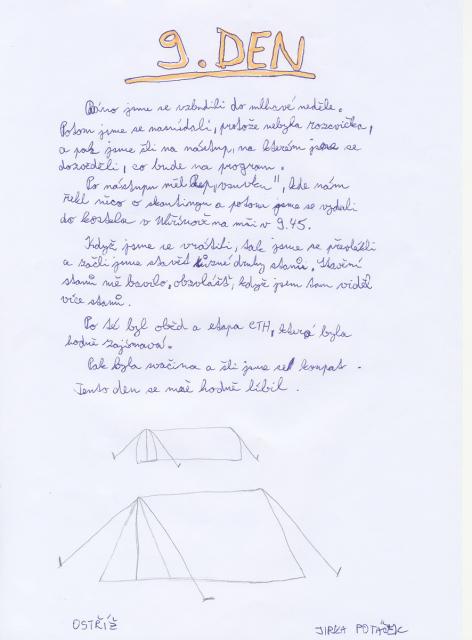 9. DEN
Ráno jsme se vzbudili do mlhavé neděle.
Potom jsme se nasnídali, protože nebyla rozcvička,
a pak jsme šli na nástup, na kterém jsme se
dozvěděli, co bude na program.
Po nástupu měl Pep „vsuvku", kde nám
řekl něco o skautingu a potom jsme se vydali
do kostela v na mši v 9.45.
Když jsme se vrátili, tak jsme se převlékli
a začli jsme stavět různé druhy stanů. Stavění
stanů mě bavilo, obzvlášť, když jsem tam viděl
více stanů.
Po té byl oběd a etapa CTH, která byla
hodně zajímavá.
Pak byla svačina a šli jsme se koupat.
Tento den se mně hodně líbil.
OSTŘÍŽ
JIRKA